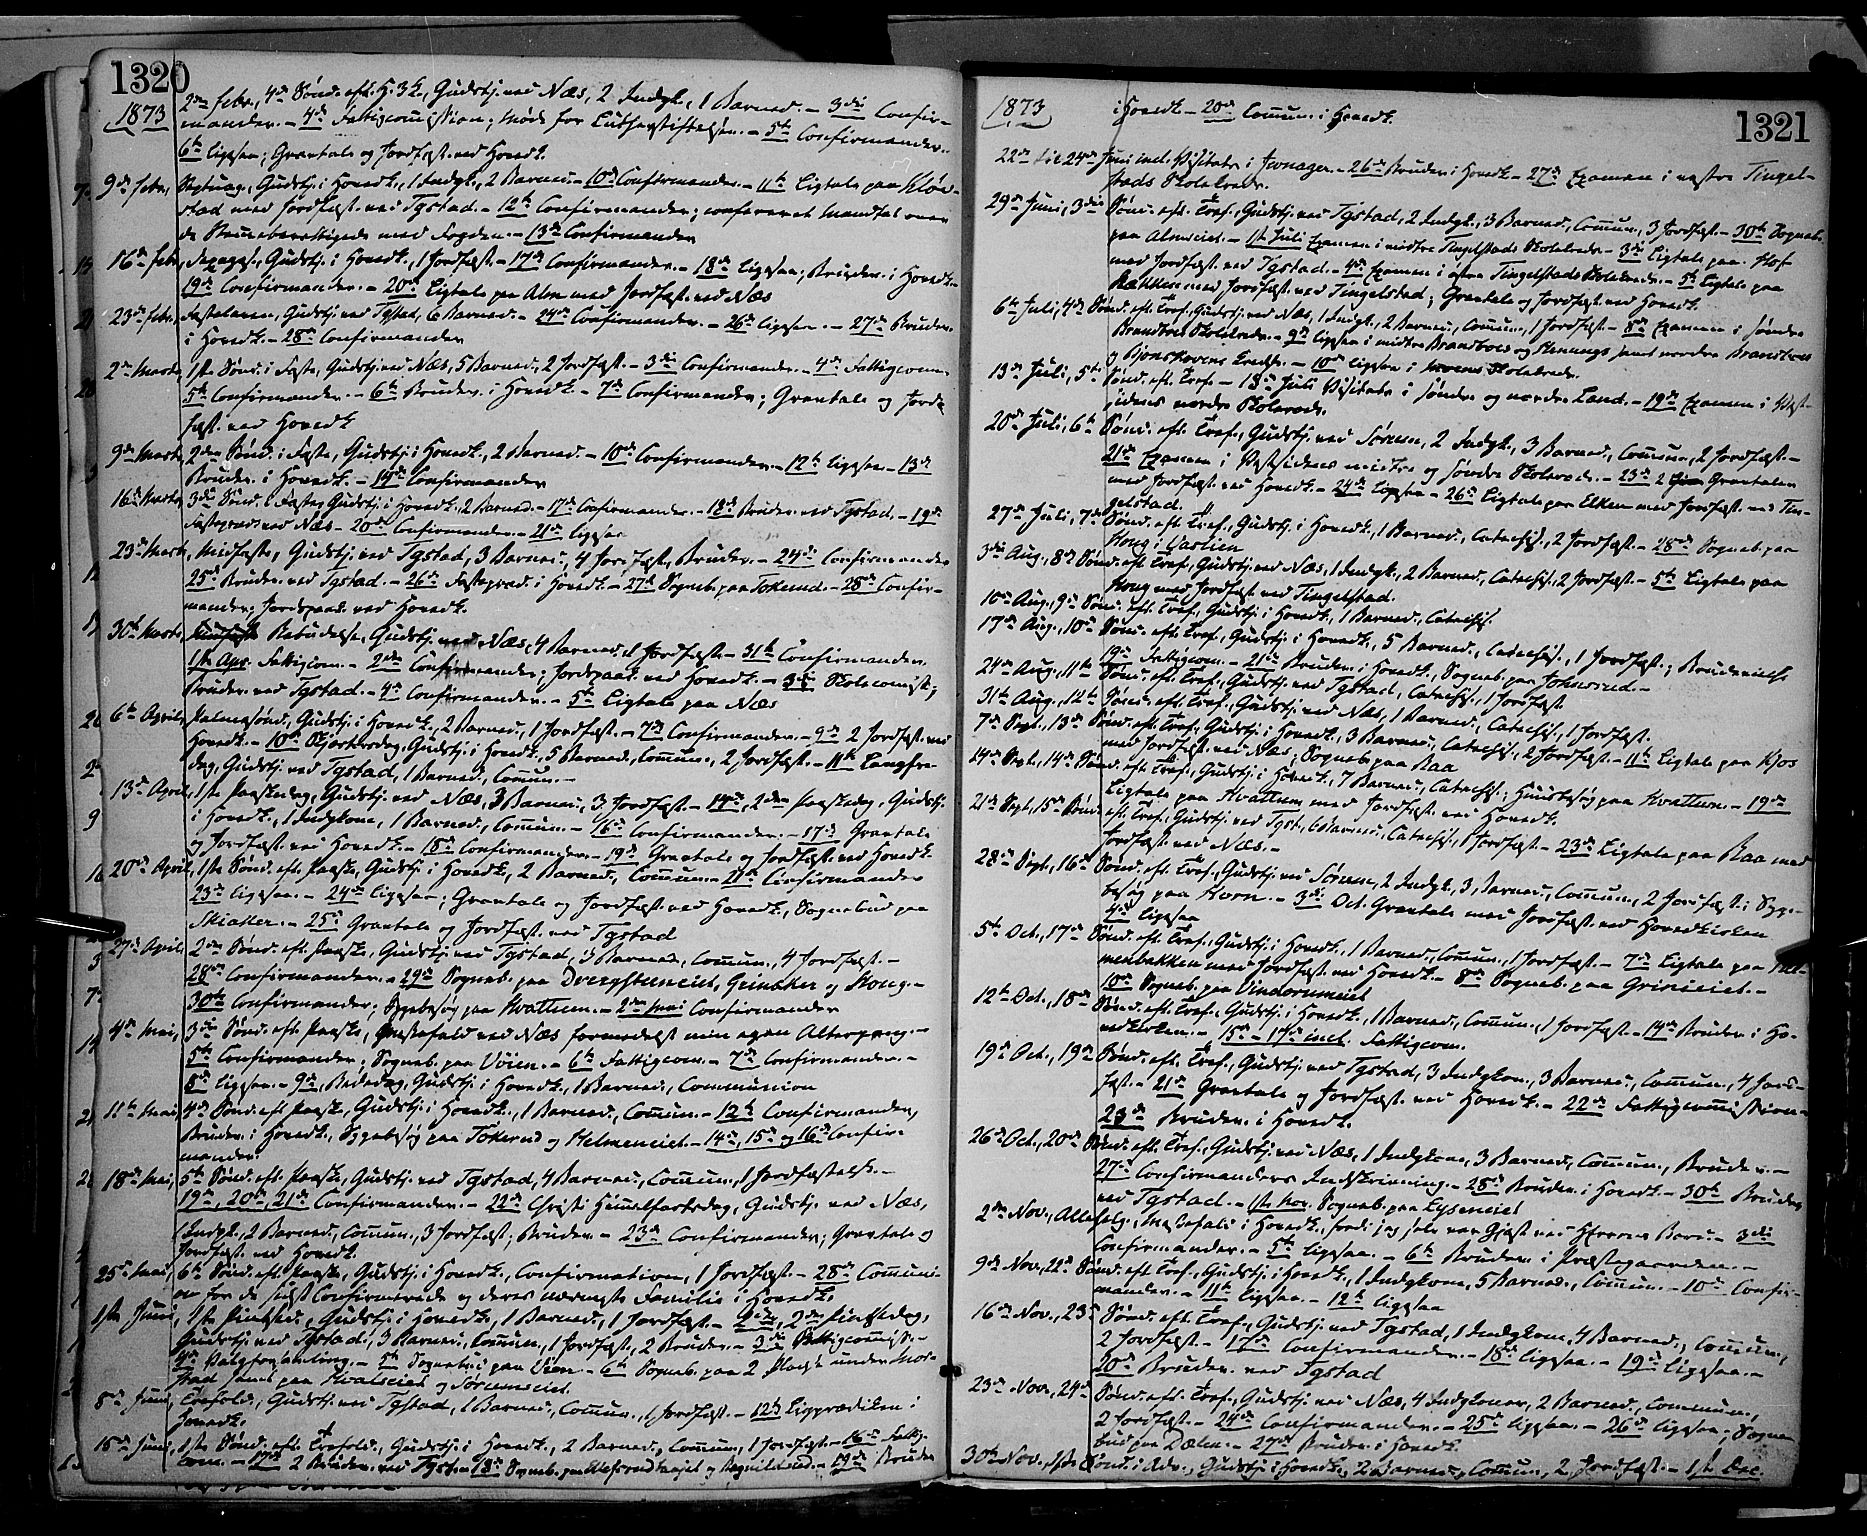 1320
1873
2den Febr., 4de Sønd. eft. H. 3 K., Gudstj. ved Næs, 2 Indgk., 1 Barned. - 3die Confir-
mander. - 4de Fattigcommission; Møde for Lutherstiftelsen. - 5te Confirmander.
6te Ligpsea; Gravtale og Jordfæst. ved Hovedk.
9de Febr., Septuag., Gudstj. i Hovedk., 1 Indgk., 2 Barned. - 10de Confirmander. - 11te Ligtale paa
stad med Jordfæst. ved Tgstad. - 12te Confirmander; confereret Mandtal over
de Stemmeberettigede med Fogden. - 13de Confirmander
16de Febr., Sexages., Gudstj. i Hovedk., 1 Jordfæst. - 17de Confirmander. - 18de Ligpsea; Brudev. i Hovedk. -
19de Confirmander. - 20de Ligtale paa Alm med Jordfæst. ved Næs
23de Febr., Fastelavn, Gudstj. ved Tgstad, 6 Barned. - 24de Confirmander. - 26de Ligpsea. - 27de Brudev.
i Hovedk. - 28de Confirmander
2den Marts, 1ste Sønd. i Faste, Gudstj. ved Næs, 5 Barned., 2 Jordfæst. - 3die Confirmander. - 4de Fattigcom.
5te Confirmander. - 6te Brudev. i Hovedk. - 7de Confirmander; Gravtale og Jord-
fæst. ved Hovedk.
9de Marts, 2den Sønd. i Faste, Gudstj. i Hovedk., 2 Barned. - 10de Confirmander. - 12te Ligpsea - 13de
Brudev. i Hovedk. - 14de Confirmander
16de Marts, 3die Sønd. i Faste, Gudstj. i Hovedk., 2 Barned. - 17de Confirmander. - 18de Brudev. ved Tgstad. - 19de
Fastepræd. ved Næs - 20de Confirmander. - 21de Ligpsea
23de Marts, Midfaste, Gudstj. ved Tgstad, 3 Barned., 4 Jordfæst., Brudev. - 24de Confirmander
25de Brudev. ved Tgstad. - 26de Fastepræd. i Hovedk. - 27de Sogneb. paa Tokerud. - 28de Confir-
mander; Jordspaak. ved Hovedk.
30te Marts, Bebudelse, Gudstj. ved Næs, 4 Barned., 1 Jordfæst. - 31te Confirmander.
1ste Apr. Fattigcom. - 2den Confirmander; Jordspaak. ved Hovedk. - 3die Skolecomist;
Brudev. ved Tgstad. - 4de Confirmander. - 5te Ligtale paa Næs
6te April, Palmesønd., Gudstj. i Hovedk., 2 Barned., 1 Jordfæst. - 7de Confirmander. - 9de 2 Jordfæst. ved
Hovedk. - 10de Skjærtorsdag, Gudstj. i Hovedk., 5 Barned., Comun., 2 Jordfæst. - 11te Langfre-
dag, Gudstj. ved Tgstad, 1 Barned., Comun. -
13de April, 1ste Paaskedag, Gudstj. ved Næs, 3 Barned., 3 Jordfæst. - 14de, 2den Paaskedag, Gudstj.
i Hovedk., 1 Indgkone, 1 Barned., Comun. - 16de Confirmander. - 17de Gravtale
og Jordfæst. ved Hovedk. - 18de Confirmander. - 19de Gravtale og Jordfæst. ved Hovedk.
20de April, 1ste Sønd. eft. Paaske, Gudstj. i Hovedk., 2 Barned., Comun. - 21de Confirmander
23de Ligpsea. - 24de Ligpsea; Gravtale og Jordfæst. ved Hovedk., Sognebud paa
Skiaker. - 25de Gravtale og Jordfæst. ved Tgstad
27de April, 2den Sønd. eft. Paaske, Gudstj. ved Tgstad, 3 Barned., Comun., 4 Jordfæst. -
28de Confirmander. - 29de Sogneb. paa Dvergsteneiet, Grinaker og Hong. -
30te Confirmander; Sygebesøg paa Hvattum. - 2den Mai Confirmander
4de Mai, 3die Sønd. eft. Paaske, Messefald ved Næs formedelst min egen Altergang. -
5te Confirmander; Sogneb. paa Vöien. - 6te Fattigcom. - 7de Confirmander. -
8de Ligpsea. - 9de Bededag, Gudstj. i Hovedk., 1 Barned., Communion
11te Mai, 4de Sønd. eft. Paaske, Gudstj. i Hovedk., 1 Barned., Comun. - 12te Confirmander,
Brudev. i Hovedk., Sygebesøg paa Tokerud og Helmeneiet. - 14de, 15de og 16de Confir-
mander.
18de Mai, 5te Sønd. eft. Paaske, Gudstj. ved Tgstad, 4 Barned., Comun., 1 Jordfæstelse. -
19de, 20de, 21de Confirmander. - 22de Christi Himmelfartsdag, Gudstj. ved Næs,
1 Indgk., 2 Barned., Comun., 3 Jordfæst., Brudev. - 23de Confirmander; Gravtale og
Jordfæst. ved Hovedk.
25de Mai, 6te Sønd. eft. Paaske, Gudstj. i Hovedk., Confirmation, 1 Jordfæst. - 28de Comuni-
on for de sidst Confirmerede og deres nærmeste Familie i Hovedk.
1ste Juni, 1ste Pintsed., Gudstj. i Hovedk., 1 Barned., 1 Jordfæst. - 2den, 2den Pintsedag,
Gudstj. ved Tgstad, 3 Barned., Comun., 1 Jordfæst., 2 Brudev. - 3die Fattigcommiss. -
4de Valgforsamling. - 5te Sogneb. paa Vien. - 6te Sogneb. paa 2 Pladse under Mor-
stad samt paa Hvalseiet og Sørumseiet.
8de Juni, Trefold., Gudstj. ved Tgstad, 1 Barned., Comun., 1 Jordfæst. - 12te Ligprædiken i
Hovedk.
15de Juni, 1ste Sønd. eft. Trefold., Gudstj. i Hovedk., 2 Barned., Comun., 1 Jordfæst. - 16de Fattig-
com. - 17de 2 Brudev. ved Tgst. - 18de Sogneb. paa - 19de Brudev.
1321
1873
i Hovedk. - 20de Comun. i Hovedk.
22de til 24de Juni incl. Visitats i Jevnager. - 26de Brudev. i Hovedk. - 27de Examen i vestre Tingel-
stads Skolekreds.
29de Juni, 3die Sønd. eft. Tref., Gudstj. ved Tgstad, 2 Indgk., 3 Barned., Comun., 3 Jordfæst. - 30te Sogneb.
paa Almseiet. - 1ste Juli Examen i midtre Tingelstads Skolekreds. - 3die Ligtale paa Hof
med Jordfæst. ved Tgstad. - 4de Examen i østre Tingelstads Skolekreds. - 5te Ligtale paa
Rækken med Jordfæst. ved Tingelstad; Gravtale og Jordfæst. ved Hovedk.
6te Juli, 4de Sønd. eft. Tref., Gudstj. ved Næs, 1 Indgk., 2 Barned., Comun., 1 Jordfæst. - 8de Examen i søndre
Brandbos Skolekreds. - 9de Ligpsea i midtre Brandbos og Hennungs samt nordre Brandbos
og Bjoneskovens Kredse. - 10de Ligpsea i Skolekreds.
13de Juli, 5te Sønd. eft. Tref. - 18de Juli Visitats i søndre og nordre Land. - 19de Examen i Vest-
sidens nordre Skolekreds.
20de Juli, 6te Sønd. eft. Tref., Gudstj. ved Sørum, 2 Indgk., 3 Barned., Comun., 2 Jordfæst. -
21de Examen i Vestsidens midtre og søndre Skolekreds. - 23de 2 Gravtaler
med Jordfæst. ved Hovedk. - 24de Ligpsea - 26de Ligtale paa Elken med Jordfæst. ved Tin-
gelstad.
27de Juli, 7de Sønd. eft. Tref., Gudstj. i Hovedk., 1 Barned., Catechis., 2 Jordfæst. - 28de Sogneb. paa
Hong i Vaslien
3die Aug., 8de Sønd. eft. Tref., Gudstj. ved Næs, 1 Indgk., 2 Barned., Catechis., 2 Jordfæst. - 5te Ligtale paa
Hong med Jordfæst. ved Tingelstad.
10de Aug., 9de Sønd. eft. Tref., Gudstj. i Hovedk., 1 Barned., Catechis.
17de Aug., 10de Sønd. eft. Tref., Gudstj. i Hovedk., 5 Barned., Catechis., 1 Jordfæst.; Brudevielse
19de Fattigcom. - 21de Brudev. i Hovedk., Sogneb. paa Johnsrud. -
24de Aug., 11te Sønd. eft. Tref., Gudstj. ved Tgstad, Catechis., 1 Jordfæst.
31te Aug., 12te Sønd. eft. Tref., Gudstj. ved Næs, 1 Barned., Catechis., 1 Jordfæst.
7de Sept., 13de Sønd. eft. Tref., Gudstj. i Hovedk., 3 Barned., Catechis., 2 Jordfæst. - 11te Ligtale paa Kjos
med Jordfæst. ved Næs; Sogneb. paa Raa
14de Sept., 14de Sønd. eft. Tref., Gudstj. i Hovedk., 7 Barned., Catechis.; Huusbesøg paa Hvattum. - 19de
Ligtale paa Hvattum med Jordfæst. ved Hovedk.
21de Sept., 15de Sønd. eft. Tref., Gudstj. ved Tgst., 6 Barned., Catechis., 1 Jordfæst. - 23de Ligtale paa Raa med
Jordfæst. ved Næs. -
28de Sept., 16de Sønd. eft. Tref., Gudstj. ved Sørum, 2 Indgk., 3 Barned., Comun., 2 Jordfæst.; Syge-
besøg paa Horn. - 3die Oct. Gravtale med Jordfæst. ved Hovedkirken
4de Ligpsea
5te Oct., 17de Sønd. eft. Tref., Gudstj. i Hovedk., 1 Barned., Comun., 1 Jordfæst. - 7de Ligtale paa
menbakken med Jordfæst. ved Hovedk. - 8de Sogneb. paa Grinieiet. -
10de Sogneb. paa Vindorumeiet
12te Oct., 18de Sønd. eft. Tref., Gudstj. i Hovedk., 1 Barned., Comun., 1 Jordfæst. - 14de Brudev. i Ho-
vedkirken. - 15de - 17de incl. Fattigcom.
19de Oct., 19de Sønd. eft. Tref., Gudstj. ved Tgstad, 3 Indgkon., 3 Barned., Comun., 4 Jord-
fæst. - 21de Gravtale og Jordfæst. ved Hovedk. - 22de Fattigcommission. -
23de Brudev. i Hovedk.
26de Oct., 20de Sønd. eft. Tref., Gudstj. ved Næs, 1 Indgkone, 3 Barned., Comun., Brudev. -
27de Confirmanders Indskrivning. - 28de Brudev. i Hovedk. - 30te Brudev.
ved Tgstad. - 1ste Nov. Sogneb. paa Lyseneiet
2den Nov., Allehelg., Messefald i Hovedk., fordi jeg selv var Gjæst ved Herrens Bord. - 3die
Confirmander. - 5te Ligpsea. - 6te Brudev. i Præstgaarden. -
9de Nov., 22de Sønd. eft. Tref., Gudstj. i Hovedk., 1 Indgkone, 5 Barned., Comun. - 10de Confir-
mander. - 11te Ligpsea. - 12te Ligpsea
16de Nov., 23de Sønd. eft. Tref., Gudstj. ved Tgstad, 1 Indgkone, 4 Barned., Comun.,
2 Jordfæst. - 17de Confirmander. - 18de Ligpsea. - 19de Ligpsea. -
20de Brudev. ved Tgstad
23de Nov., 24de Sønd. eft. Tref., Gudstj. ved Næs, 4 Indgkoner, 2 Barned., Commun.,
2 Jordfæst. - 24de Confirmander. - 25de Ligpsea. - 26de Ligpsea; Sogne-
bud paa Dælen. - 27de Brudev. i Hovedk.
30te Nov., 1ste Sønd. i Adv., Gudstj. i Hovedk., 2 Barned., Comun., 2 Jordfæst. - 1ste Dec.